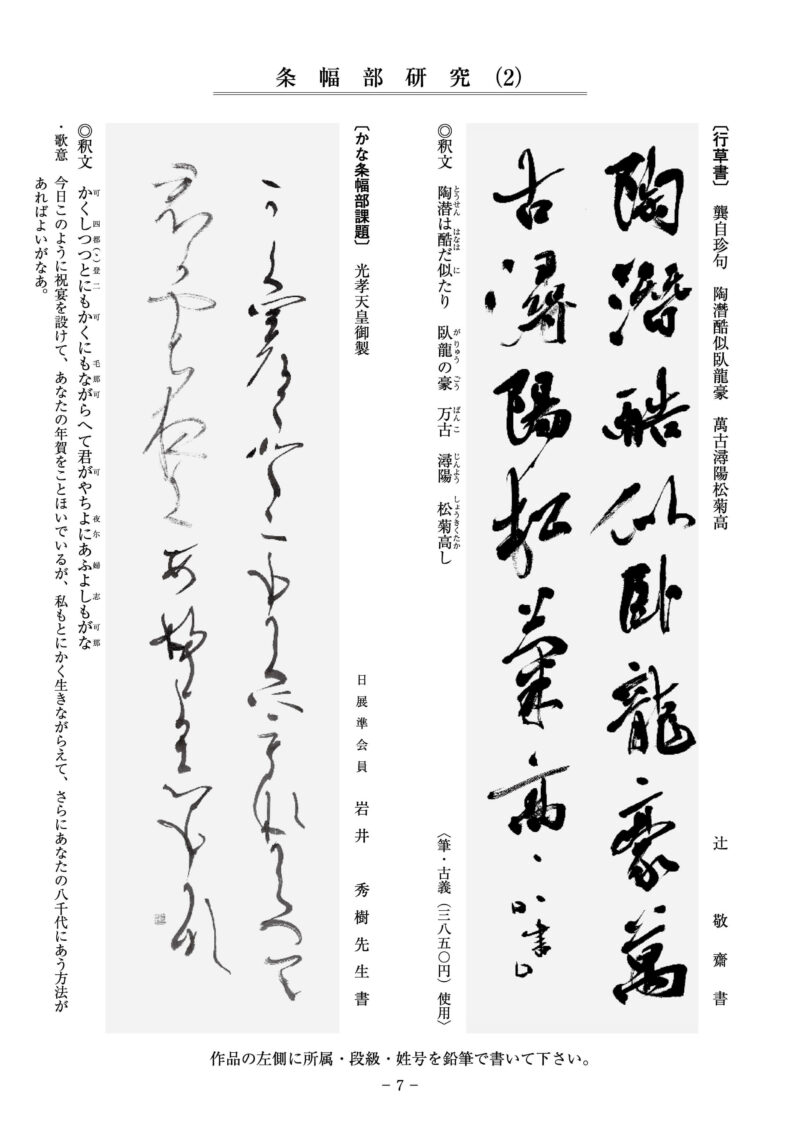 条幅部研究(2)
〔行草書〕 龔自珍句 陶潛酷似臥龍豪 萬古潯陽松菊高
辻 敬齋 書
陶潛酷似臥龍豪萬
古潯陽松菊高
◎釈文 陶潜は酷だ似たり 臥龍の豪 万古 潯陽 松菊高し
とうせん はなは に が りゅう ごう ばん こ じんよう しょうきくたか
〈筆・古義(三八五〇円)使用〉
〔かな条幅部課題〕 光孝天皇御製
日展準会員 岩井 秀樹先生書
◎釈文 かくしつつとにもかくにもながらへて君がやちよにあふよしもがな
可 四都(ヽ)登二 可 毛那可 可 夜尓 婦 志 可那
・歌意 今日このように祝宴を設けて、あなたの年賀をことほいでいるが、私もとにかく生きながらえて、さらにあなたの八千代にあう方法が
あればよいがなあ。
作品の左側に所属・段級・姓号を鉛筆で書いて下さい。
– 7 –